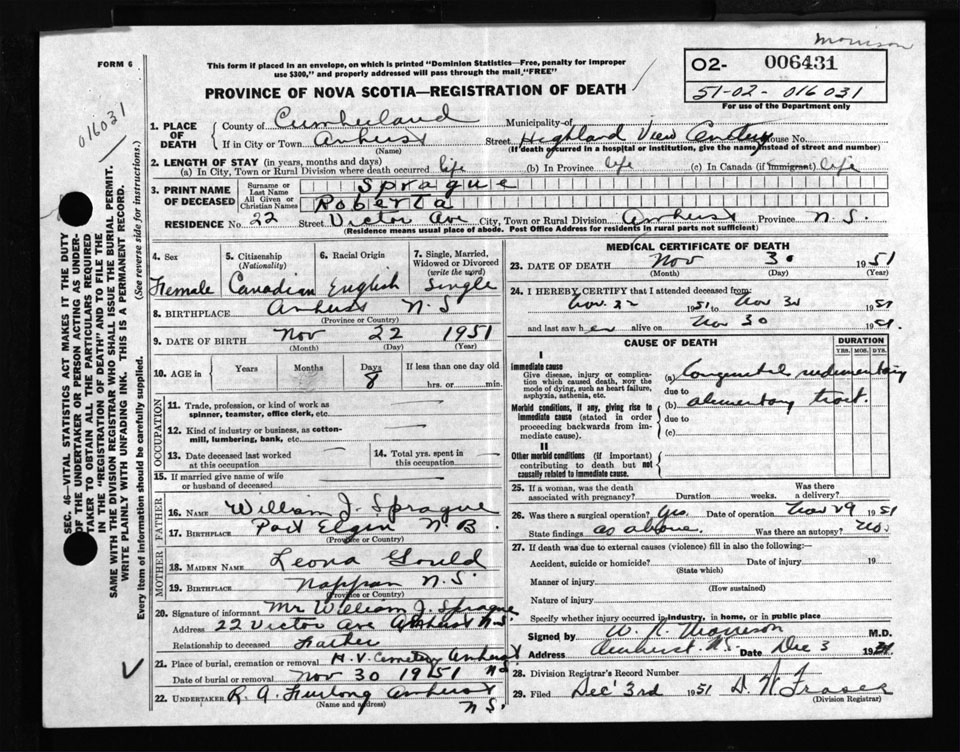 Morrison
FORM 6
This form if placed in an envelope, on which is printed "Dominion Statistics—Free, penalty for improper
use $300," and properly addressed will pass through the mail "FREE"
PROVINCE OF NOVA SCOTIA—REGISTRATION OF DEATH
02- 006431
51-02-016031
For use of the Department only
016031
SEC. 46—VITAL STATISTICS ACT MAKES IT THE DUTY
OF THE UNDERTAKER OR PERSON ACTING AS UNDER-
TAKER TO OBTAIN ALL THE PARTICULARS REQUIRED
IN THE "REGISTRATION OF DEATH" AND TO FILE THE
SAME WITH THE DIVISION REGISTRAR WHO SHALL ISSUE THE BURIAL PERMIT.
WRITE PLAINLY WITH UNFADING INK. THIS IS A PERMANENT RECORD.
Every item of information should be carefully supplied. (See reverse side for instructions.)
1. PLACE OF DEATH
County of Cumberland Municipality of
If in City or Town Amherst Street Highland View House No.
(Name) (If death occurred in a hospital or institution, give the name instead of street and number)
2. LENGTH OF STAY (in years, months and days)
(a) In City, Town or Rural Division where death occurred life (b) In Province life (c) In Canada (if immigrant) life
3. PRINT NAME OF DECEASED
Surname or Last Name Sprague
All Given or Christian Names Roberta
RESIDENCE No. 22 Street Victor Ave City, Town or Rural Division Amherst Province N.S.
(Residence means usual place of abode. Post Office Address for residents in rural parts not sufficient)
4. Sex 5. Citizenship (Nationality) 6. Racial Origin 7. Single, Married, Widowed or Divorced (write the word)
Female Canadian English Single
8. BIRTHPLACE Amherst N S
(Province or Country)
9. DATE OF BIRTH Nov 22 1951
(Month) (Day) (Year)
10. AGE in Years Months Days 8 If less than one day old
hrs. or min.
OCCUPATION
11. Trade, profession, or kind of work as
spinner, teamster, office clerk, etc.
12. Kind of industry or business, as cotton-
mill, lumbering, bank, etc.
13. Date deceased last worked at this occupation
14. Total yrs. spent in this occupation
15. If married give name of wife
or husband of deceased
FATHER
16. Name William J. Sprague
17. Birthplace Port Elgin N.B.
(Province or Country)
MOTHER
18. Maiden Name Leona Gould
19. Birthplace Nappan N.S.
(Province or Country)
20. Signature of informant Mr William J. Sprague
Address 22 Victor Ave Amherst N.S.
Relationship to deceased Father
21. Place of burial, cremation or removal H.V. Cemetery Amherst
NS
Date of burial or removal Nov 30 1951
22. UNDERTAKER R. A. Furlong Amherst
(Name and address) N S.
MEDICAL CERTIFICATE OF DEATH
23. DATE OF DEATH Nov 30 1951
(Month) (Day) (Year)
24. I HEREBY CERTIFY that I attended deceased from:
Nov. 22 1951, Nov 30 1951
and last saw her alive on Nov 30 1951.
CAUSE OF DEATH DURATION
YRS. MOS. DYS.
I
Immediate cause
Give disease, injury or complica-
tion which caused death, NOT the
mode of dying, such as heart failure,
asphyxia, asthenia, etc.
(a) Congenital rudimentary
due to
Morbid conditions, if any, giving rise to
immediate cause (stated in order
proceeding backwards from im-
mediate cause).
(b) alimentary tract.
due to
(c)
II
Other morbid conditions (if important)
contributing to death but not
causally related to immediate cause.
25. If a woman, was the death
associated with pregnancy? Duration weeks. Was there a delivery?
26. Was there a surgical operation? Yes. Date of operation Nov 29 1951
State findings as above. Was there an autopsy? No.
27. If death was due to external causes (violence) fill in also the following:—
Accident, suicide or homicide? Date of injury 19
(State which)
Manner of injury
(How sustained)
Nature of injury
Specify whether injury occurred in industry, in home, or in public place
Signed by Morrison M.D.
Address Amherst. N.S. Date Dec 3 1951
28. Division Registrar's Record Number
29. Filed Dec 3rd 1951 Fraser
(Division Registrar)